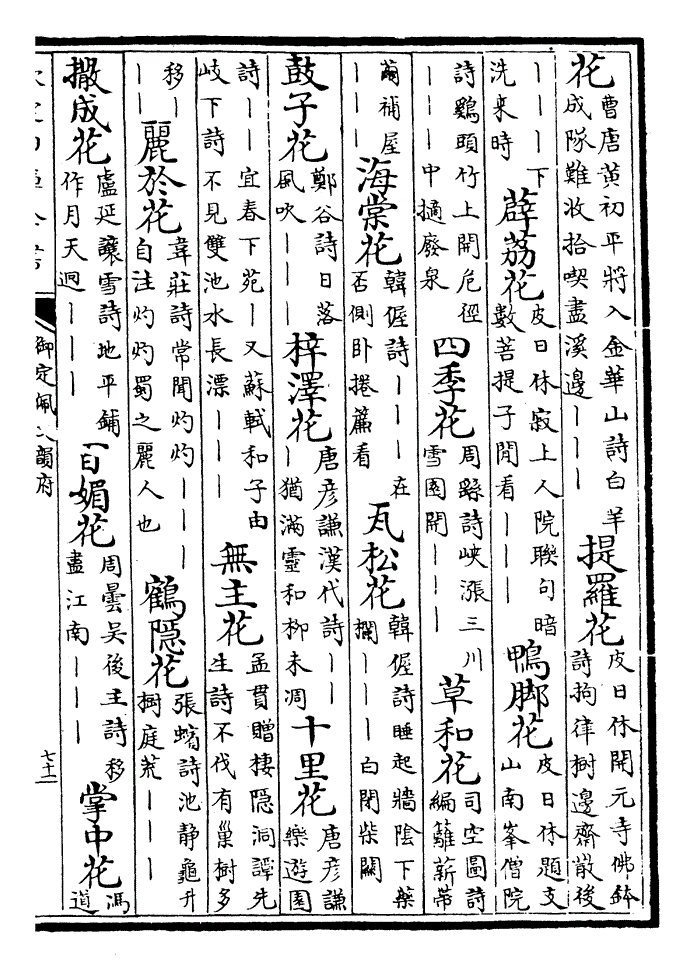 花曹唐黄初平將入金華山詩白羊成隊難收拾喫盡溪邊丨丨丨 提羅花皮日休開元寺佛鉢詩拘律樹邊齋散後
丨丨丨下洗來時 薜荔花皮日休寂上人院聯句暗數菩提子閒看丨丨丨 鴨脚花皮日休題支山南峯僧院
詩鷄頭竹上開危徑丨丨丨中擿廢泉 四季花周繇詩峽漲三川雪園開丨丨丨 草和花司空圖詩編籬薪帶
繭補屋丨丨丨 海棠花韓偓詩丨丨丨在否側卧捲簾看 瓦松花韓偓詩睡起牆陰下藥攔丨丨丨白閉柴關
鼓子花鄭谷詩日落風吹丨丨丨 梓澤花唐彦謙漢代詩丨丨丨猶滿靈和栁未凋 十里花唐彦謙樂遊園
詩丨丨丨宜春下苑丨又蘇軾和子由岐下詩不見雙池水長漂丨丨丨 無主花孟貫贈棲隱洞譚先生詩不伐有巢樹多
移丨丨丨 麗於花韋莊詩常聞灼灼丨丨丨自注灼灼蜀之麗人也 鶴隱花張蠙詩池静龜升樹庭荒丨丨丨
撒成花盧延讓雪詩地平鋪作月天迥丨丨丨 百媚花周曇吳後主詩移盡江南丨丨丨 掌中花馮道
御定佩文韻府